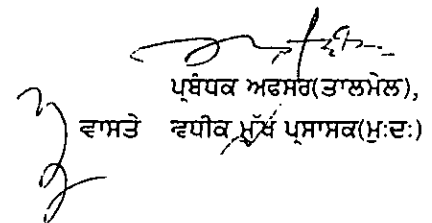 ਪ੍ਰਬੰਧਕ ਅਫਸਰ(ਤਾਲਮੇਲ),
ਵਾਸਤੇ ਵਧੀਕ ਮੁੱਖ ਪ੍ਰਸਾਸਕ(ਮੁ:ਦ:)